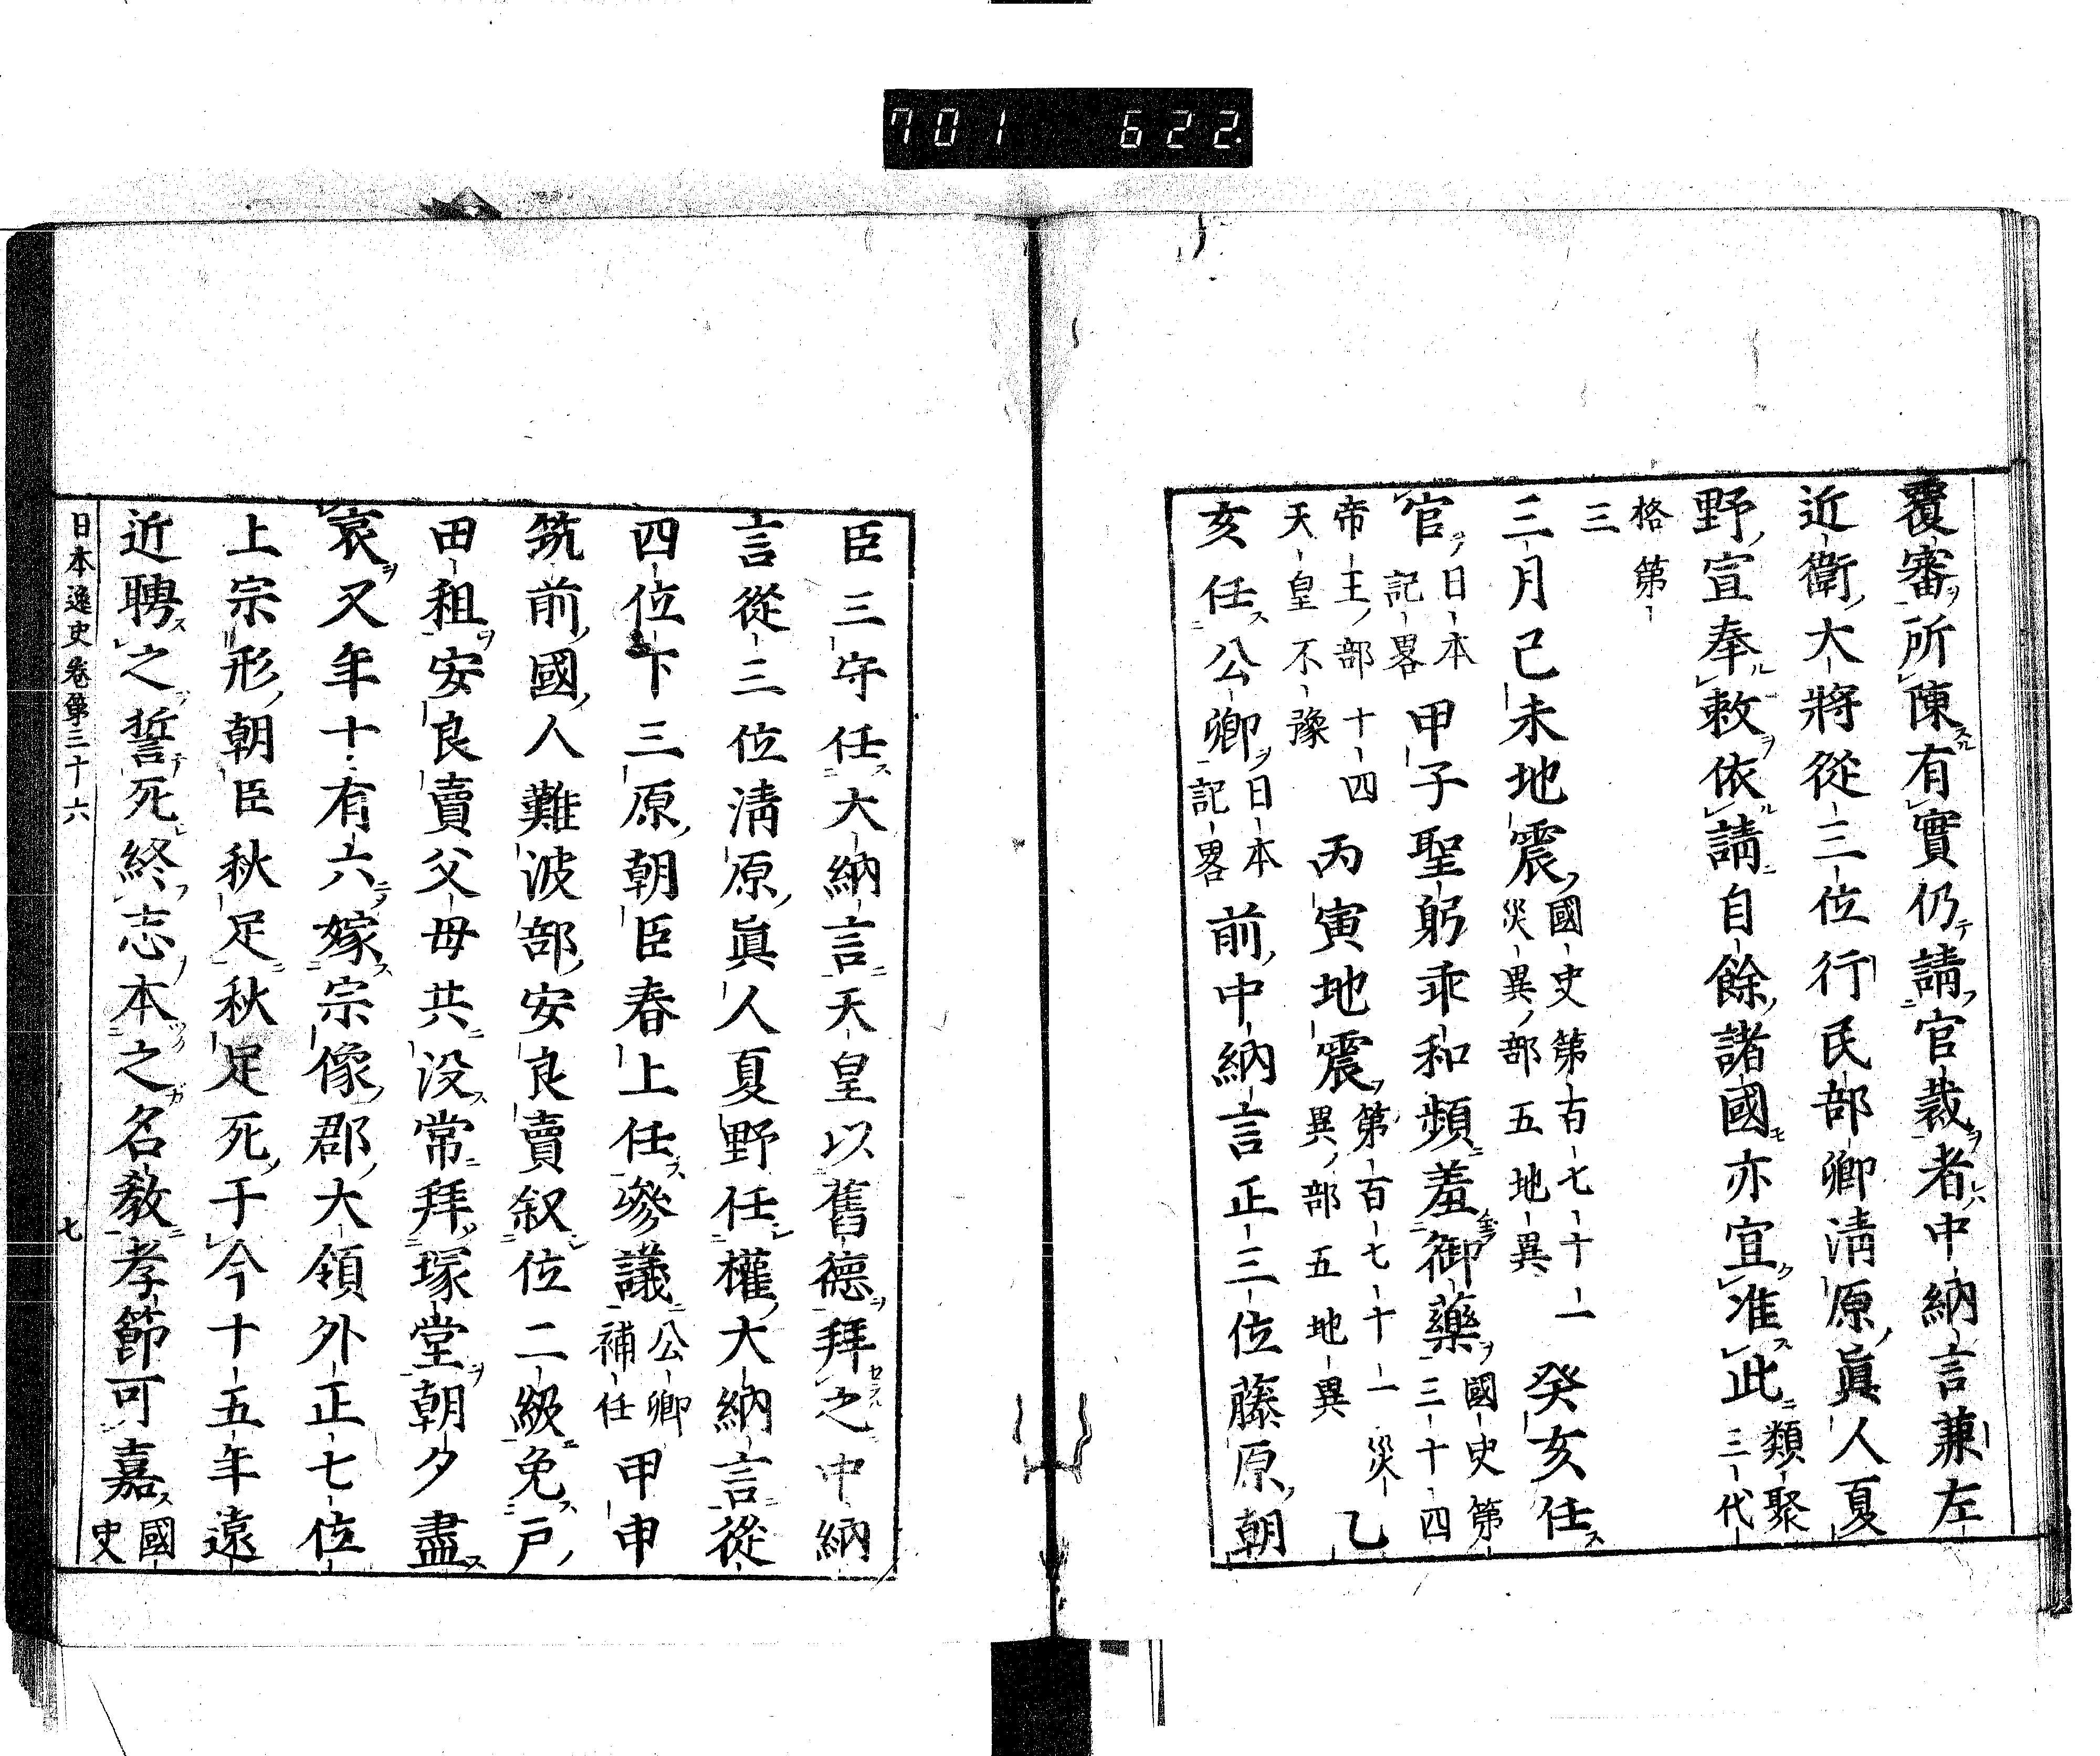 701 622.
覆審所陳有實仍請官裁者中納言兼左
近衛大將從三位行民部卿淸原眞人夏
野宣奉敕依請自餘諸國亦宜准此類聚三代
格第三
三月己未地震國史第百七十一災異部五地異癸亥任
官日本記畧甲子聖躬乖和頻羞御藥國史第三十四
帝王部十四天皇不豫丙寅地震第百七十一災異部五地異乙
亥任公卿日本記畧前中納言正三位藤原朝
臣三守任大納言天皇以舊德拜之中納
言從三位淸原眞人夏野任權大納言從
四位下三原朝臣春上任參議公卿補任甲申
筑前國人難波部安良賣叙位二級免戸
田租安良賣父母共没常拜塚堂朝夕盡
哀又年十有六嫁宗像郡大領外正七位
上宗形朝臣秋足秋足死于今十五年遠
近聘之誓死終志本之名敎孝節可嘉國史
日本逸史卷第三十六 七